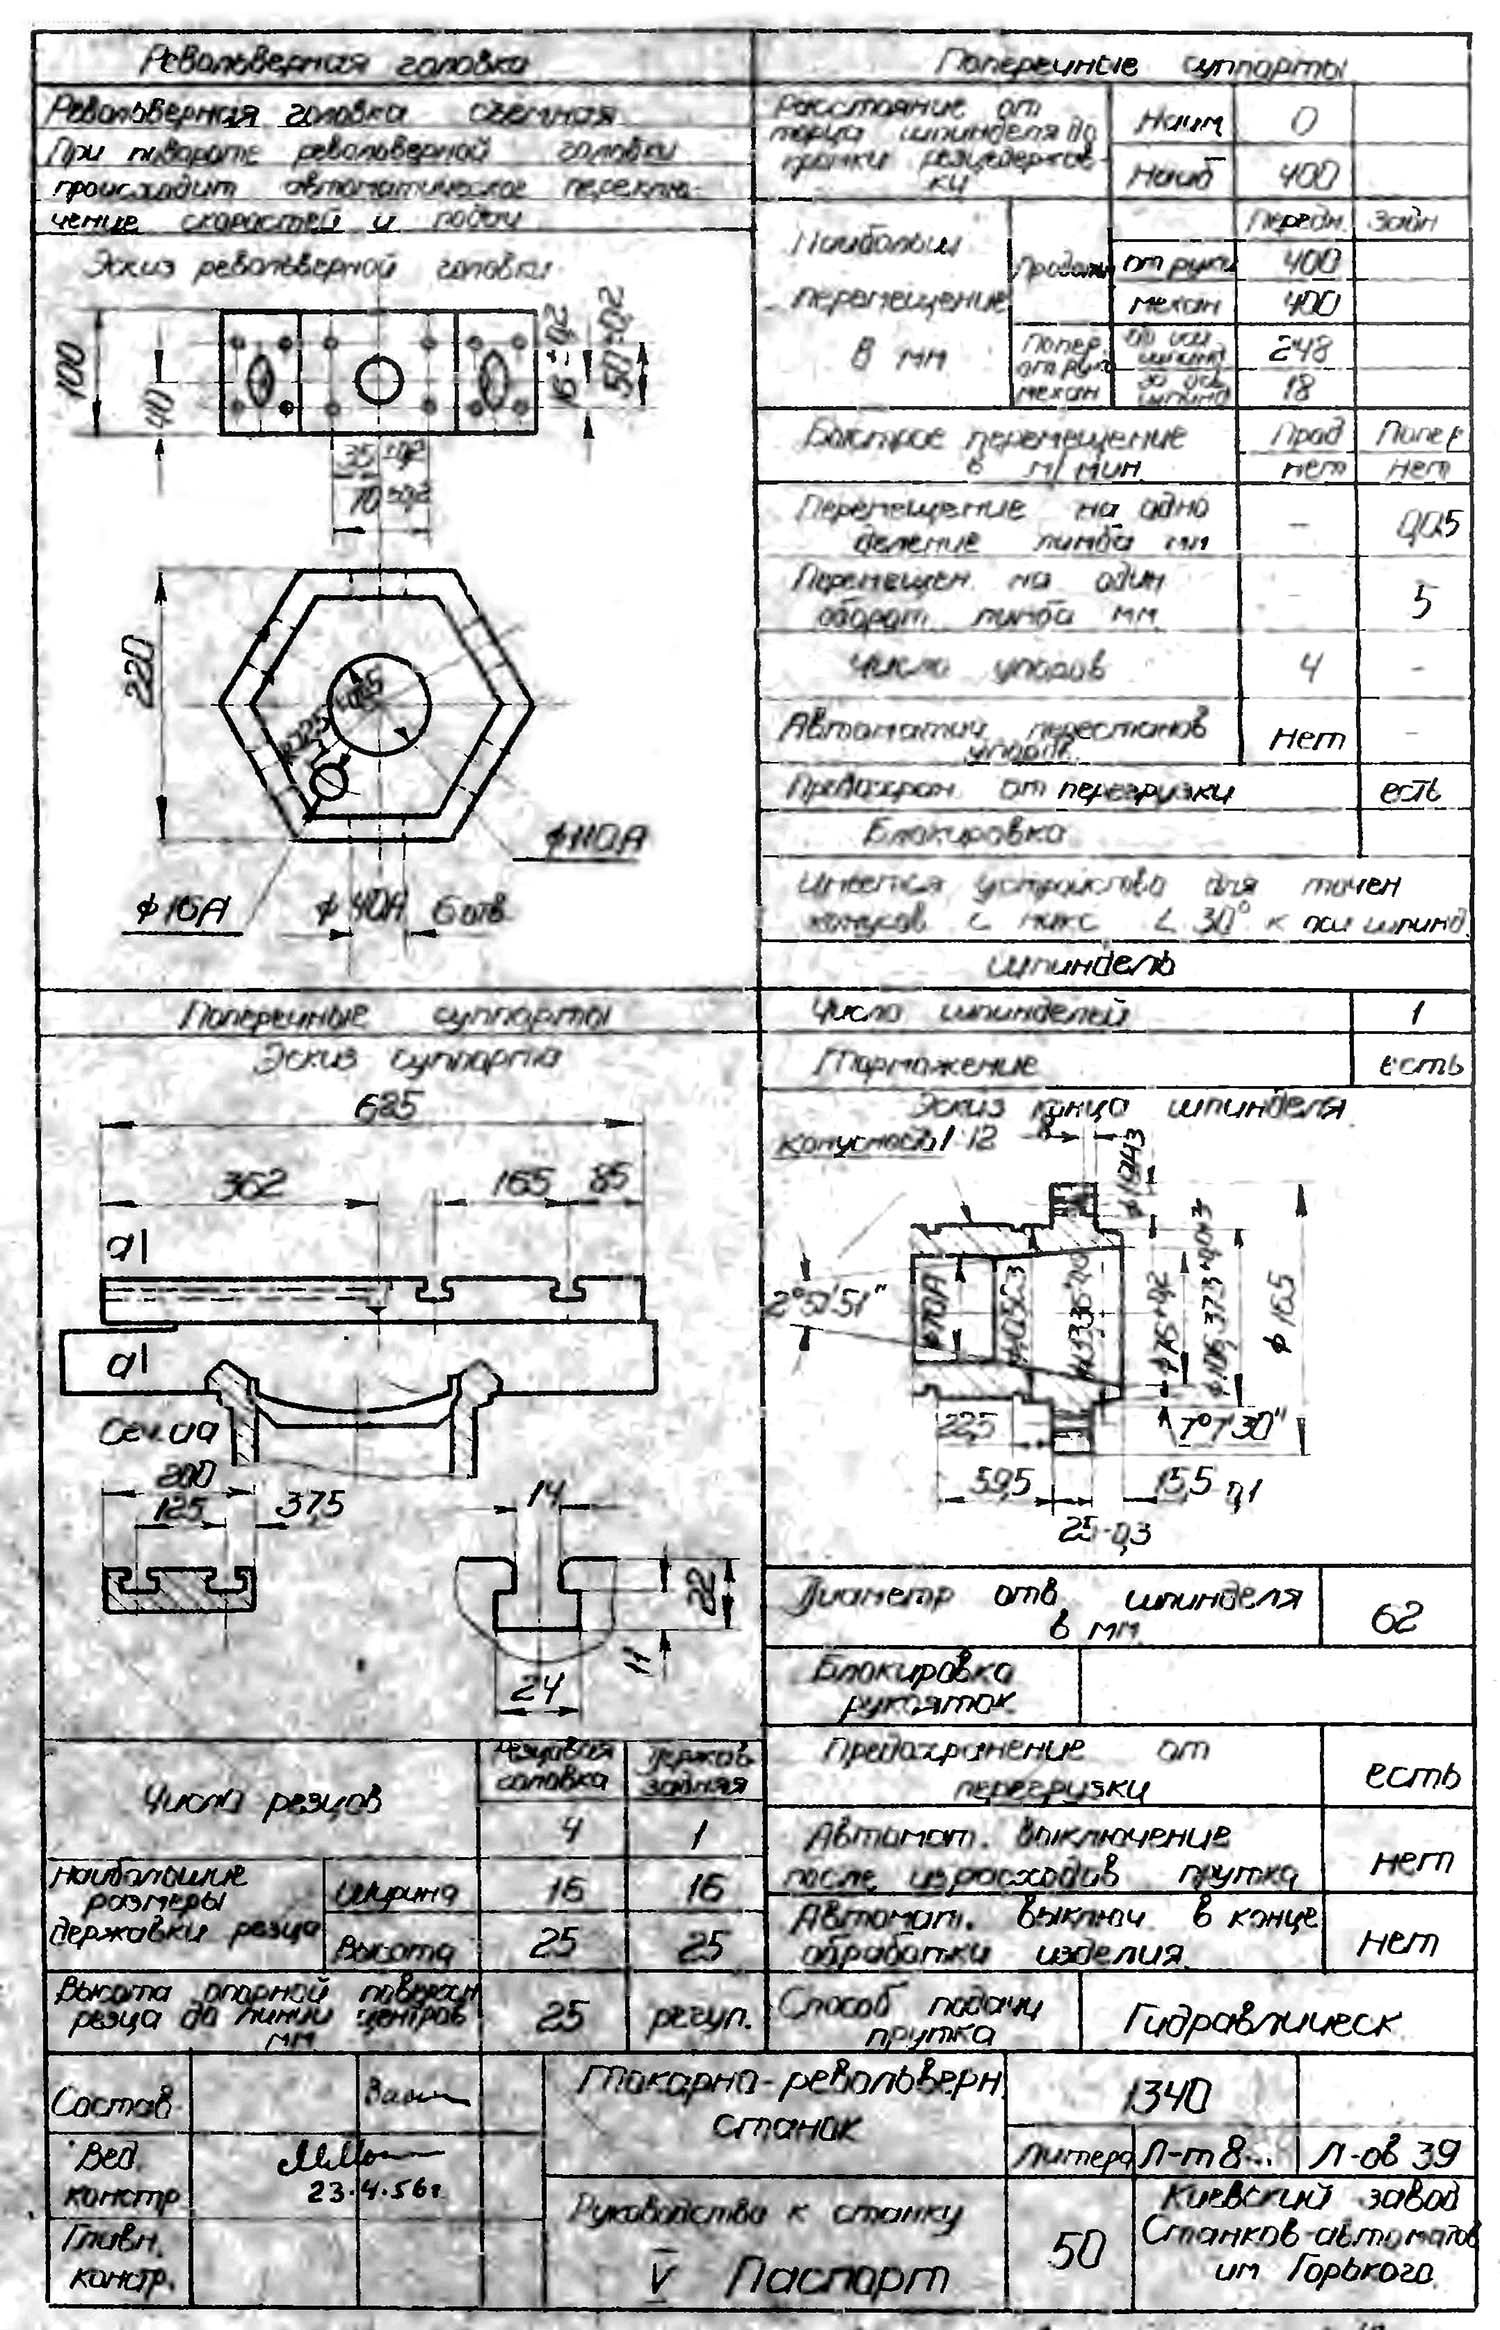 Револьверная головка
Револьверная головка съемная
При повороте револьверной головки
происходит автоматическое переклю-
чение скоростей и подач
Эскиз револьверной головки
100
40
16 ±0,2
50 ±0,2
35 ±0,2
70 ±0,2
220
ф110А
ф16А
ф40А 6 отв.
Поперечные суппорты
Эскиз суппорта
625
362
165
85
а|
а|
200
125
37,5
14
22
11
24
Число резцов
Резцовая головка
Держав. задняя
4
1
Наибольшие
размеры
державки резца
Ширина
16
16
Высота
25
25
Высота опорной поверхн
резца до линии центров
мм
25
регул.
Поперечные суппорты
Расстояние от
торца шпинделя до
гранки резцедержав-
ки
Наим
0
Наиб
400
Наибольш
перемещение
в мм
Передн.
Задн
Продольн
от руки
400
механ
400
Попер.
от рук
механ
до оси шпинд
248
за ось шпинд
18
Быстрое перемещение
в м/мин.
Прод
Попер
нет
нет
Перемещение на одно
деление лимба мм
-
0,05
Перемещен. на один
оборот лимба мм
-
5
Число упоров
4
-
Автоматич. перестанов
упоров
нет
-
Предохран. от перегрузки
есть
Блокировка
Имеется устройство для точен
конусов с накс ∠ 30° к оси шпинд.
Шпиндель
Число шпинделей
1
Торможение
есть
Эскиз конца шпинделя
конусность 1:12
2°51'51"
ф70А
ф165
22,5
7°7'30"
59,5
15,5
0,1
25-0,3
Диаметр отв. шпинделя
в мм.
62
Блокировка
рукояток
Предохранение от
перегрузки
есть
Автомат. выключение
после израсходов прутка
нет
Автомат. выключ. в конце
обработки изделия.
нет
Способ подачи
прутка
Гидравлическ
Состав
Вед.
констр
23.4.56г.
Главн.
констр.
Токарно-револьверн.
станок
1340
Литера
Л-т 8...
Л-ов 39
Руководство к станку
V Паспорт
50
Киевский завод
Станков-автоматов
им Горького.